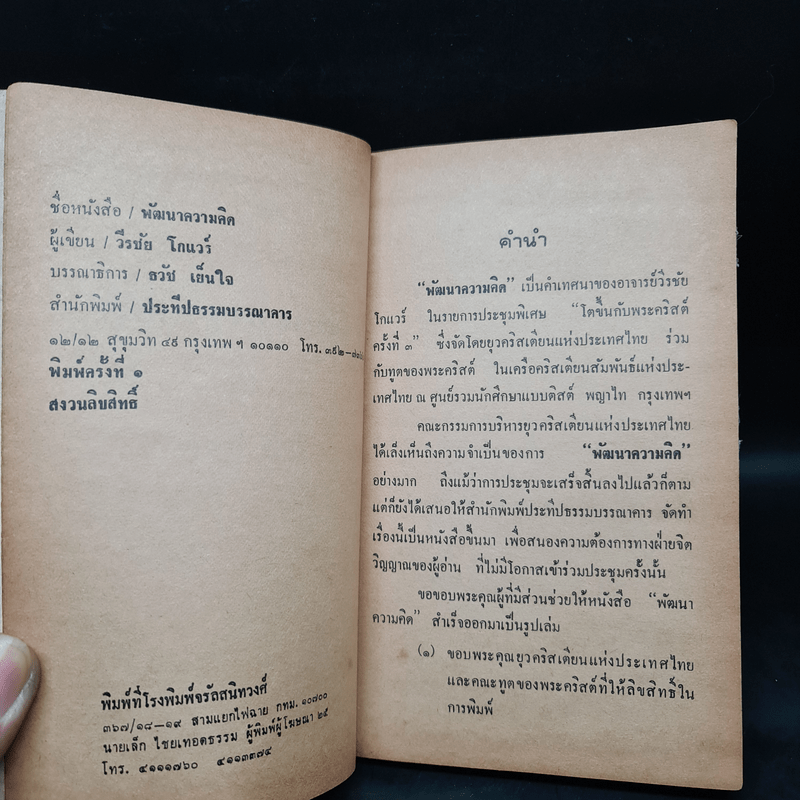 ชื่อหนังสือ / พัฒนาความคิด
ผู้เขียน / วีรชัย โกแวร์
บรรณาธิการ / ธวัช เย็นใจ
สำนักพิมพ์ / ประทีปธรรมบรรณาคาร
๑๒/๑๒ สุขุมวิท ๔๙ กรุงเทพ ฯ ๑๐๑๑๐ โทร.
พิมพ์ครั้งที่ ๑
สงวนลิขสิทธิ์
พิมพ์ที่โรงพิมพ์จรัลสนิทวงศ์
๓๖๗/๑๘–๑๙ สามแยกไฟฉาย กทม. ๑๐๗๐๐
นายเล็ก ไชยเทอดธรรม ผู้พิมพ์ผู้โฆษณา ๒๕
โทร. ๔๑๑๑๗๖๐ ๔๑๑๓๓๗๔
คำนำ
“พัฒนาความคิด” เป็นคำเทศนาของอาจารย์วีรชัย
โกแวร์ ในรายการประชุมพิเศษ “โตขึ้นกับพระคริสต์
ครั้งที่ ๓” ซึ่งจัดโดยยุวคริสเตียนแห่งประเทศไทย ร่วม
กับทูตของพระคริสต์ ในเครือคริสเตียนสัมพันธ์แห่งประ-
เทศไทย ณ ศูนย์รวมนักศึกษาแบบติสต์ พญาไท กรุงเทพฯ
คณะกรรมการบริหารยุวคริสเตียนแห่งประเทศไทย
ได้เล็งเห็นถึงความจำเป็นของการ “พัฒนาความคิด”
อย่างมาก ถึงแม้ว่าการประชุมจะเสร็จสิ้นลงไปแล้วก็ตาม
แต่ก็ยังได้เสนอให้สำนักพิมพ์ประทีปธรรมบรรณาคาร จัดทำ
เรื่องนี้เป็นหนังสือขึ้นมา เพื่อสนองความต้องการทางฝ่ายจิต
วิญญาณของผู้อ่าน ที่ไม่มีโอกาสเข้าร่วมประชุมครั้งนั้น
ขอขอบพระคุณผู้ที่มีส่วนช่วยให้หนังสือ “พัฒนา
ความคิด” สำเร็จออกมาเป็นรูปเล่ม
(๑) ขอบพระคุณยุวคริสเตียนแห่งประเทศไทย
และคณะทูตของพระคริสต์ที่ให้ลิขสิทธิ์ใน
การพิมพ์